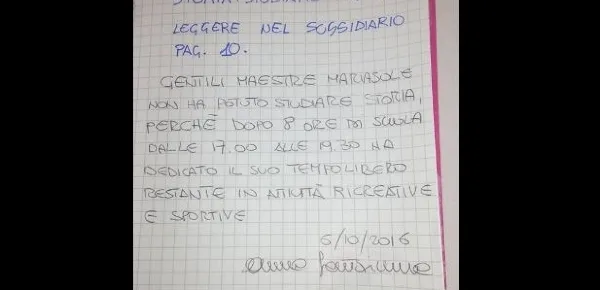 LEGGERE NEL SUSSIDIARIO
PAG. 10.
GENTILI MAESTRE MARIASOLE
NON HA POTUTO STUDIARE STORIA,
PERCHÉ DOPO 8 ORE DI SCUOLA
DALLE 17.00 ALLE 19.30 HA
DEDICATO IL SUO TEMPO LIBERO
RESTANTE IN ATTIVITÀ RICREATIVE
E SPORTIVE
6/10/2016